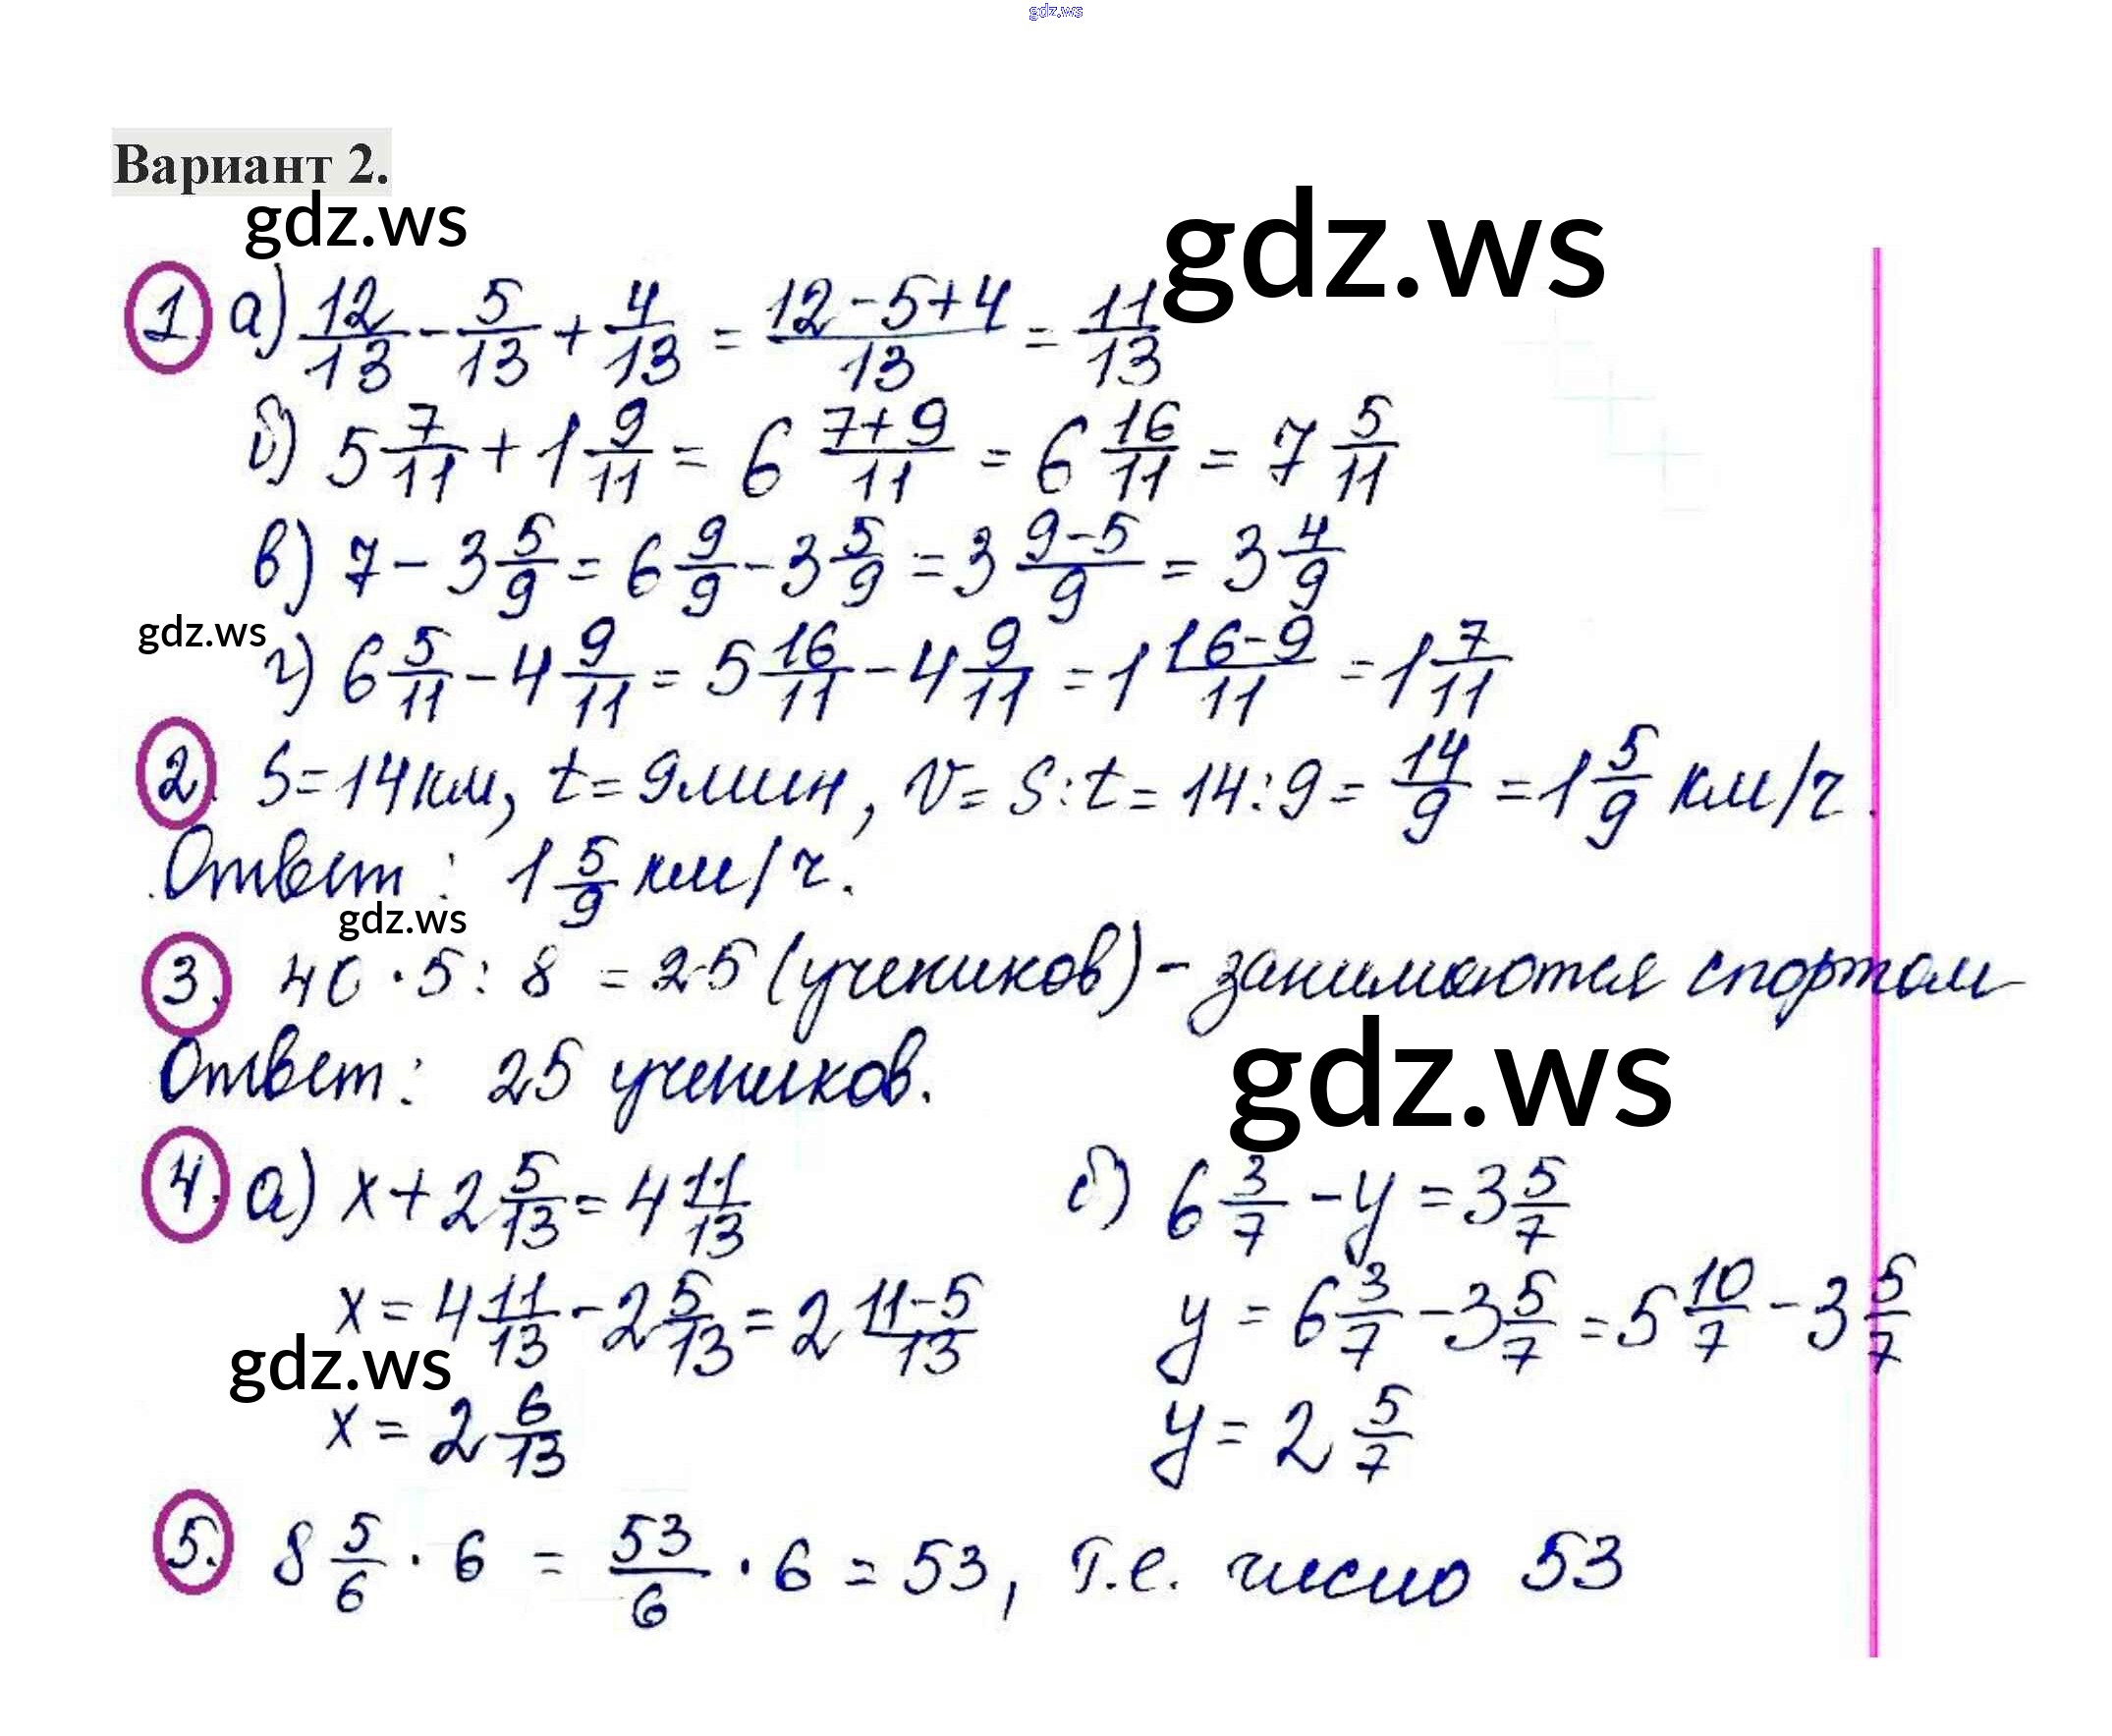 gdz.ws
Вариант 2.
gdz.ws gdz.ws
1. а) 12/13 - 5/13 + 4/13 = (12-5+4)/13 = 11/13
б) 5 7/11 + 1 9/11 = 6 (7+9)/11 = 6 16/11 = 7 5/11
в) 7 - 3 5/9 = 6 9/9 - 3 5/9 = 3 (9-5)/9 = 3 4/9
gdz.ws
г) 6 5/11 - 4 9/11 = 5 16/11 - 4 9/11 = 1 (16-9)/11 = 1 7/11
2. S = 14 км, t = 9 мин, v = S : t = 14 : 9 = 14/9 = 1 5/9 км/ч.
Ответ: 1 5/9 км/ч.
gdz.ws
3. 40 · 5 : 8 = 25 (учеников) - занимаются спортом
Ответ: 25 учеников.
gdz.ws
4. а) x + 2 5/13 = 4 11/13 б) 6 3/7 - y = 3 5/7
x = 4 11/13 - 2 5/13 = 2 (11-5)/13 y = 6 3/7 - 3 5/7 = 5 10/7 - 3 5/7
gdz.ws
x = 2 6/13 y = 2 5/7
5. 8 5/6 · 6 = 53/6 · 6 = 53, т.е. число 53